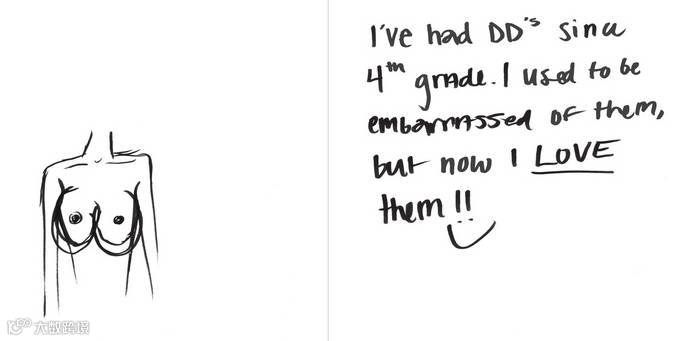 I've had DD's since
4th grade. I used to be
embarrassed of them,
but now I LOVE
them!!
大数跨境